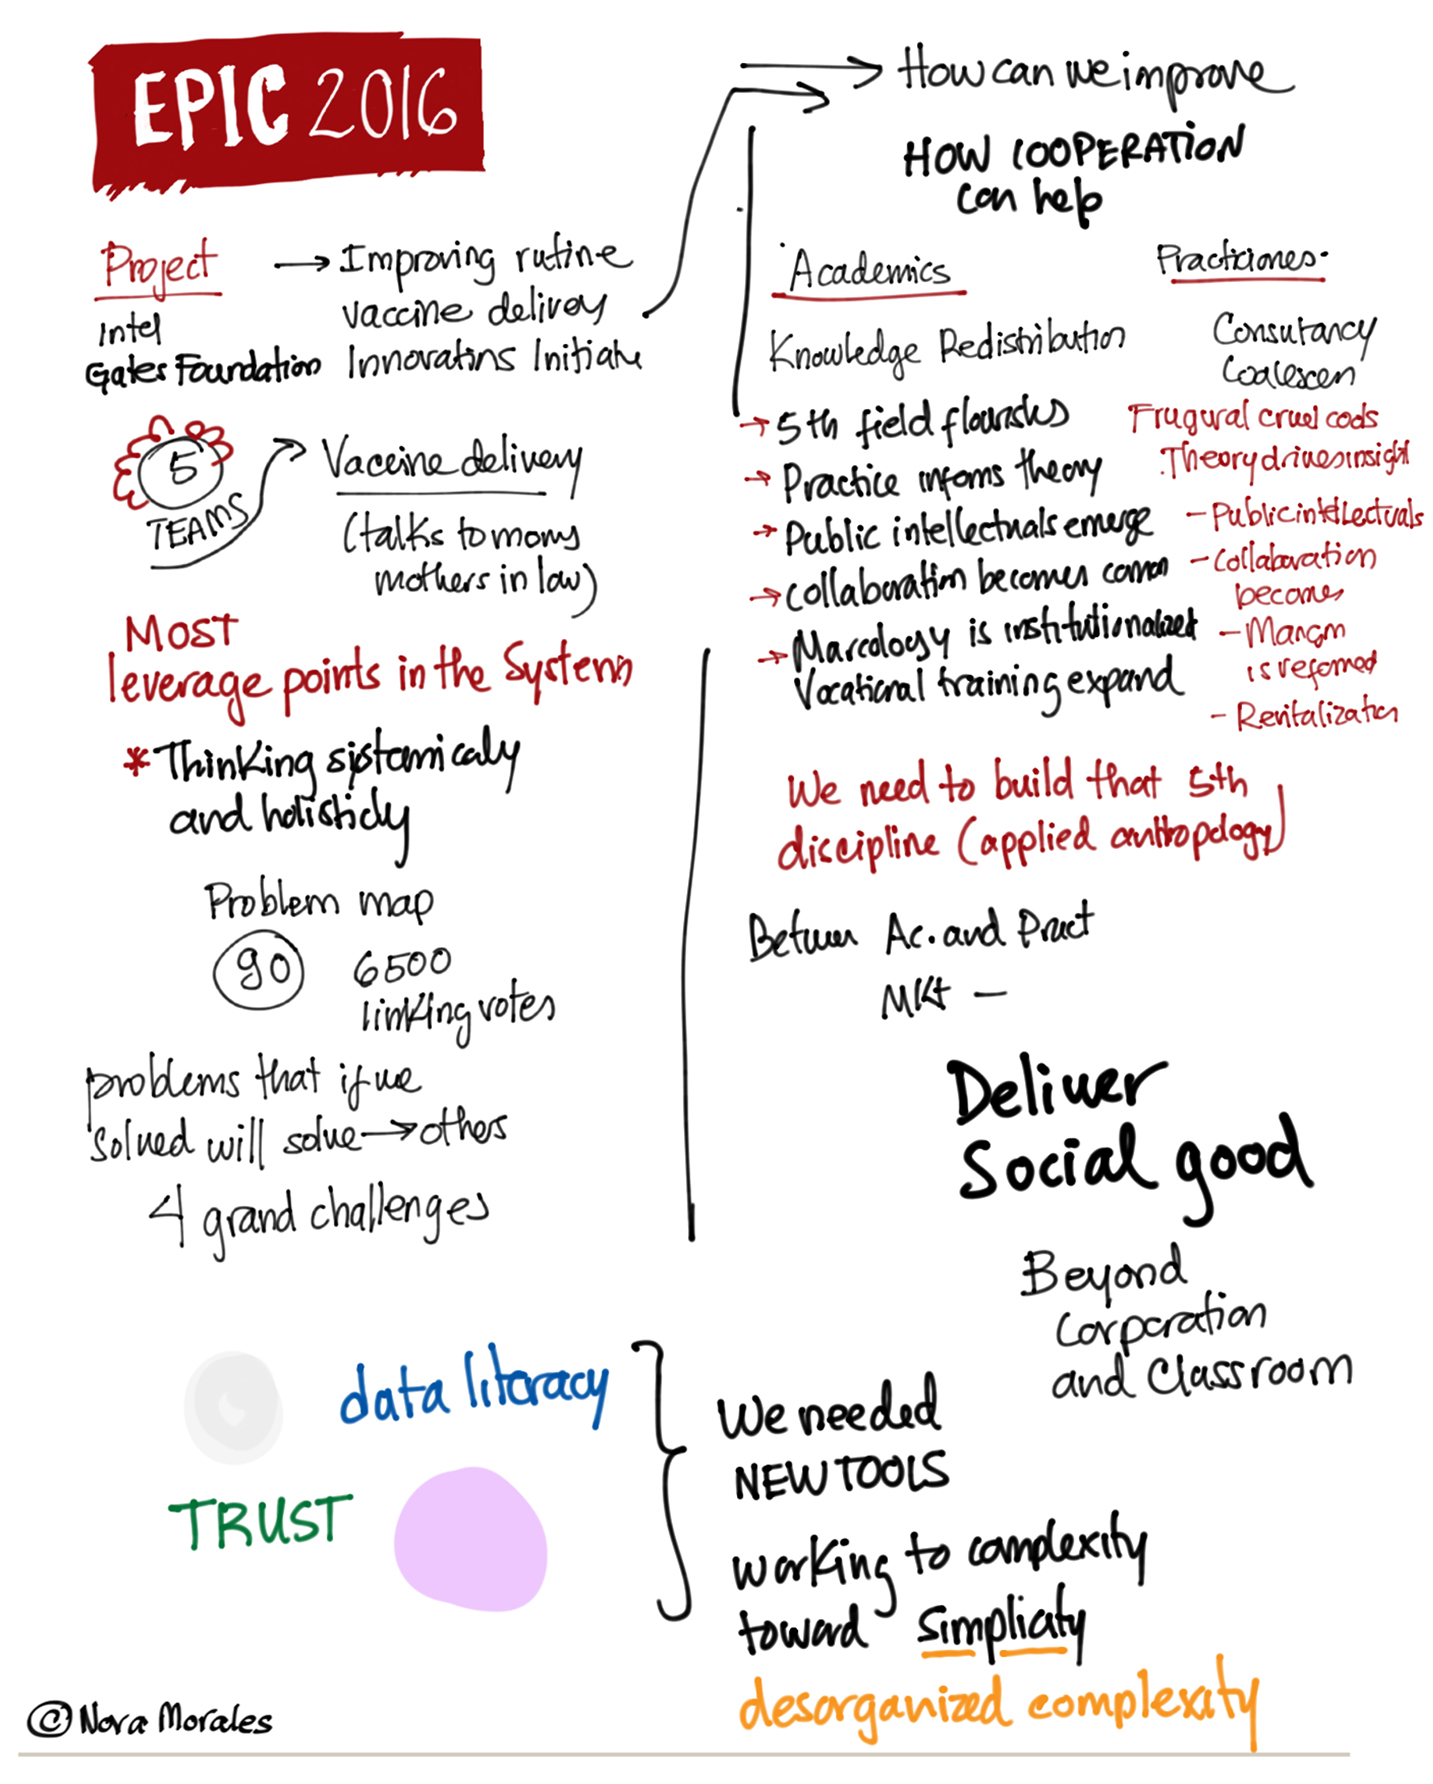 EPIC 2016
Project
Intel
Gates Foundation
→ Improving rutine
vaccine delivey
Innovatins Initiate
5
TEAMS
Vaccine delivery
(talks to moms
mothers in law)
Most
leverage points in the System
* Thinking systamicaly
and holisticly
Problem map
90
6500
linking votes
problems that if we
solved will solve → others
4 grand challenges
data literacy
TRUST
© Nora Morales
→ How can we improve
HOW COOPERATION
can help
Academics
Knowledge Redistribution
→ 5th field flourishes
→ Practice informs theory
→ Public intellectuals emerge
→ collaboration becomes common
→ Marcology is institutionalized
Vocational training expand
Practiciones
Consutancy
Coalescen
Frugural cruel cods
Theory drives insight
- Public intellectuals
- Collaboration
becomes
-
is reformed
- Revitalization
We need to build that 5th
discipline (applied anthropology)
Between Ac. and Pract
MKt —
Deliver
Social good
Beyond
Corporation
and Classroom
We needed
NEW TOOLS
working to complexity
toward simplicity
desorganized complexity